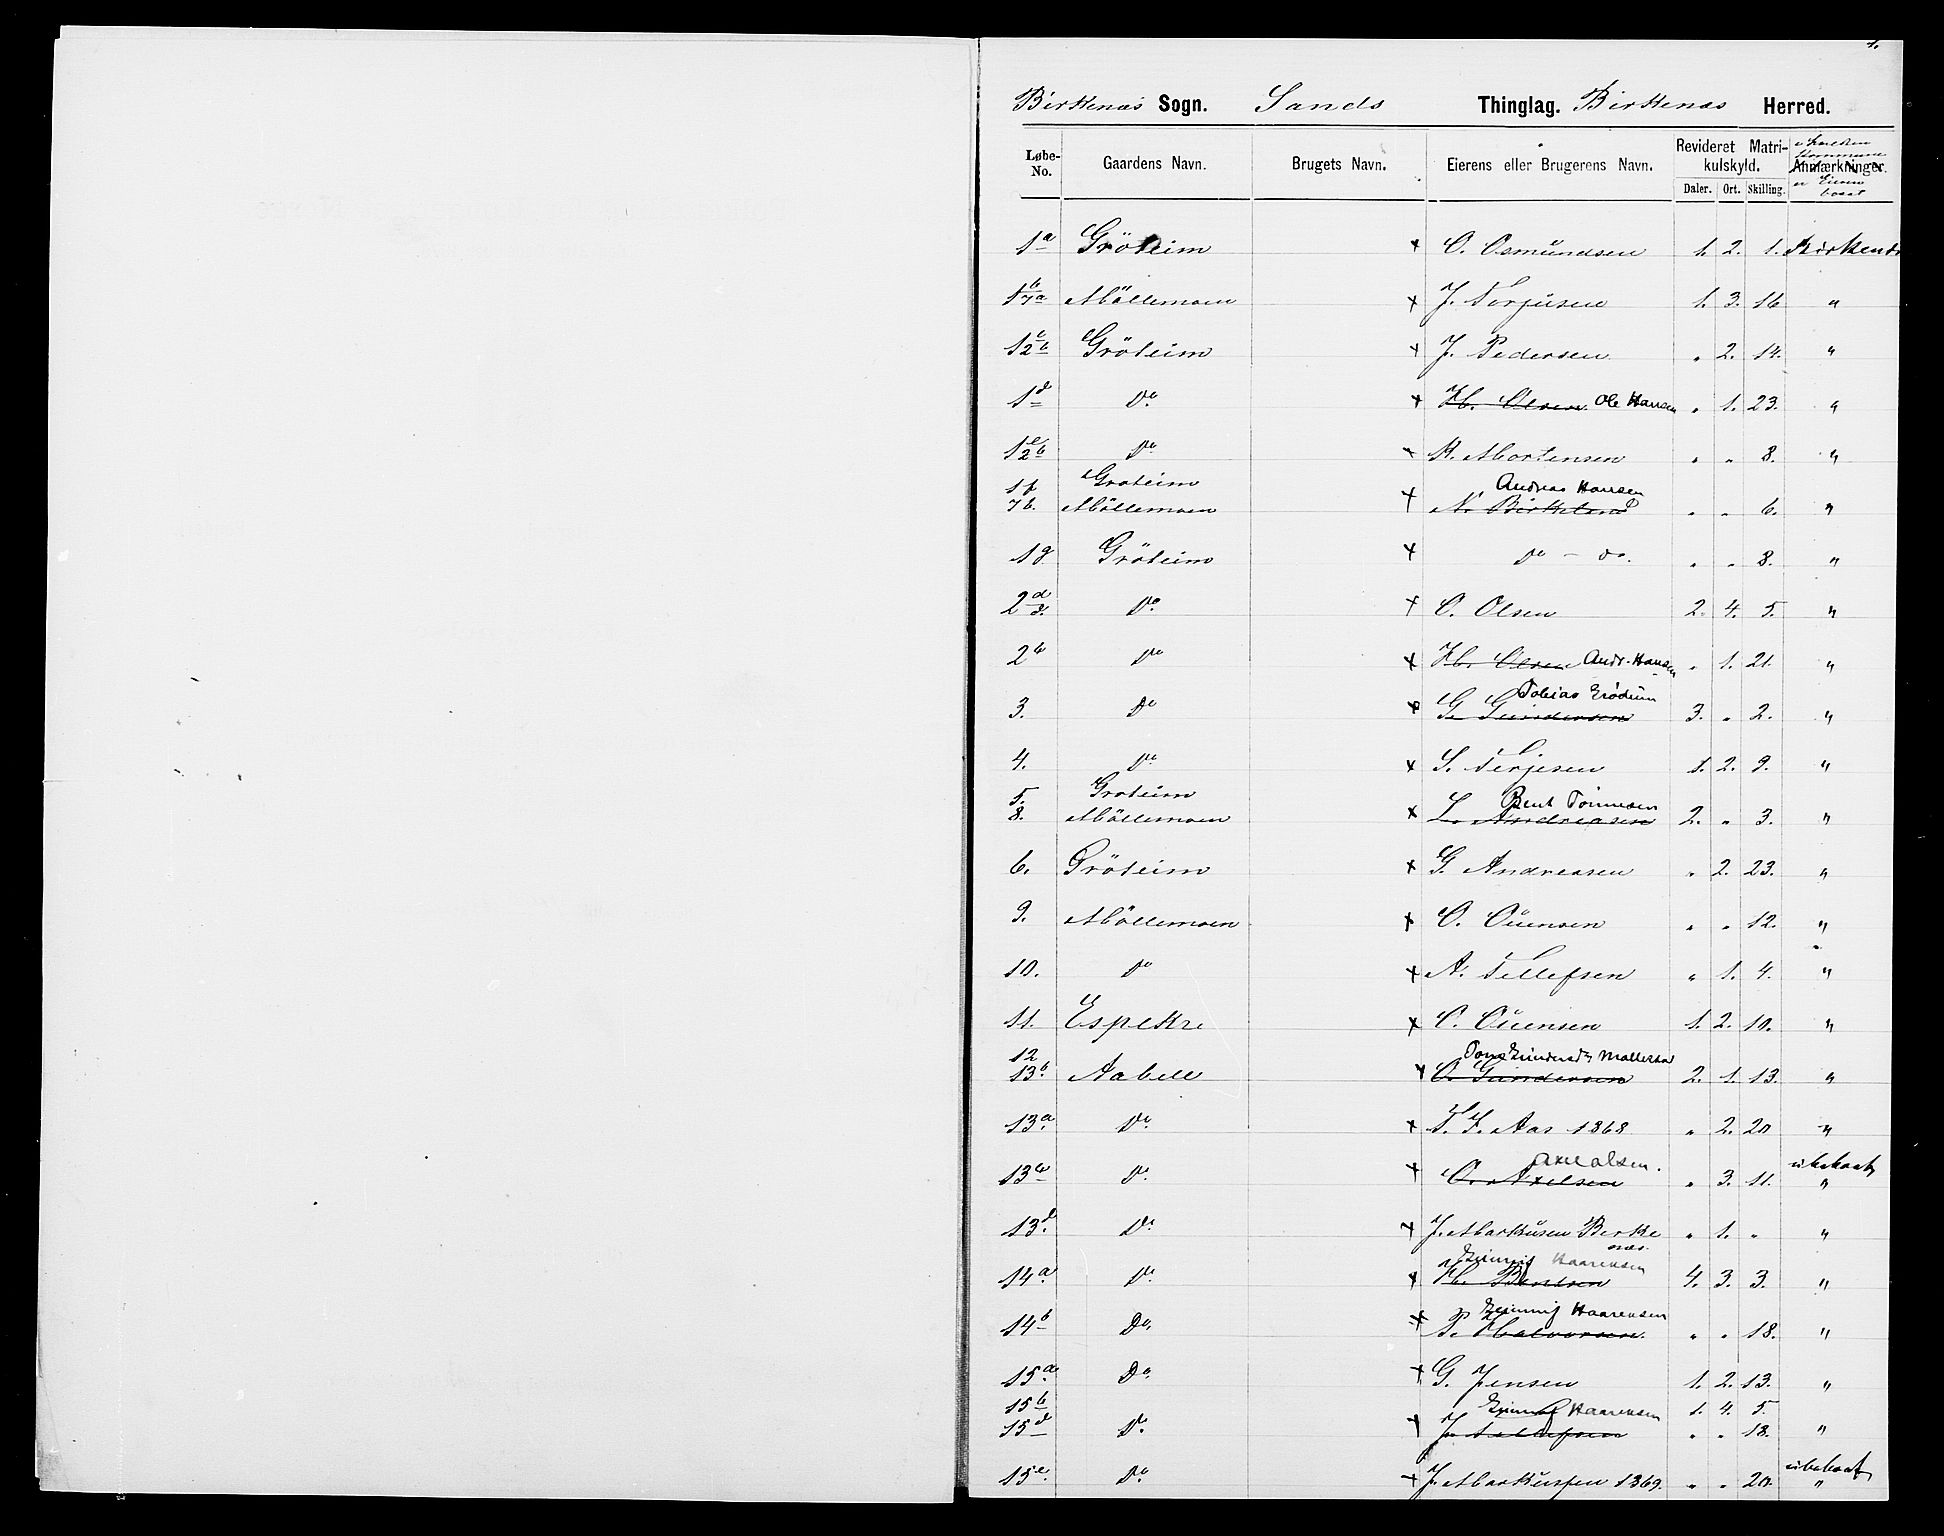 1.
Birkenæs Sogn. Sands Thinglag. Birkenæs Herred.
Løbe-No. Gaardens Navn. Brugets Navn. Eierens eller Brugerens Navn. Revideret Matrikulskyld. Daler. Ort. Skilling. Anmærkninger. Kommune er Eieren bosat
1a Gröteim + O. Osmundsen 1. 2. 1. Birkenæs
1b 7a Möllemoen + J. Torjusen 1. 3. 16 "
1c 2b Gröteim + J. Pedersen " 2. 14. "
1d Do + H. Olsen Ole Hansen " 1. 23. "
1e 2b Do + K. Mortensen " " 8. "
1f Groteim Andreas Hansen
7b. Möllemoen + N. Birkeland " " 6. "
1g Gröteim + Do - Do. " " 8. "
2a Do + O. Olsen 2. 4. 5. "
2b Do + H. Olsen Andr. Hansen " 1. 21. "
3. Do + G. Gundersen Tobias Grödum 3. " 2. "
4. Do + S. Terjesen 1. 2. 9. "
5. Groteim Bent Tönnesen
8. Möllemoen + L. Andreasen 2. " 3. "
6. Gröteim + G. Andreasen " 2. 23. "
9. Möllemoen + O. Ouensen " " 12. "
10. Do + A. Tellefsen " 1. 4. "
11. Espekre + O. Ouensen 1. 2. 10. "
12
13b. Aabell + O. Gundersen 2. 1. 13. "
13a. Do + T. J. Aas 1868 " 2. 20 "
13c Do + O. Axelsen Axel Olsen. " 3. 11. ubeboet "
13d. Do + J. Markusen Birkenæs. " 1. " "
14a Do + H. Bentsen Haarensen 4. 3. 3. "
14b Do. + P. Halvorsen Haarensen " " 18. "
15a. Do. + G. Jensen 1. 2. 13. "
15b Haarensen 1. 4. 5.
15d Do. + J. Tellefsen " " 18. "
15e. Do + J. Markussen 1869. " " 20. ubeboet "